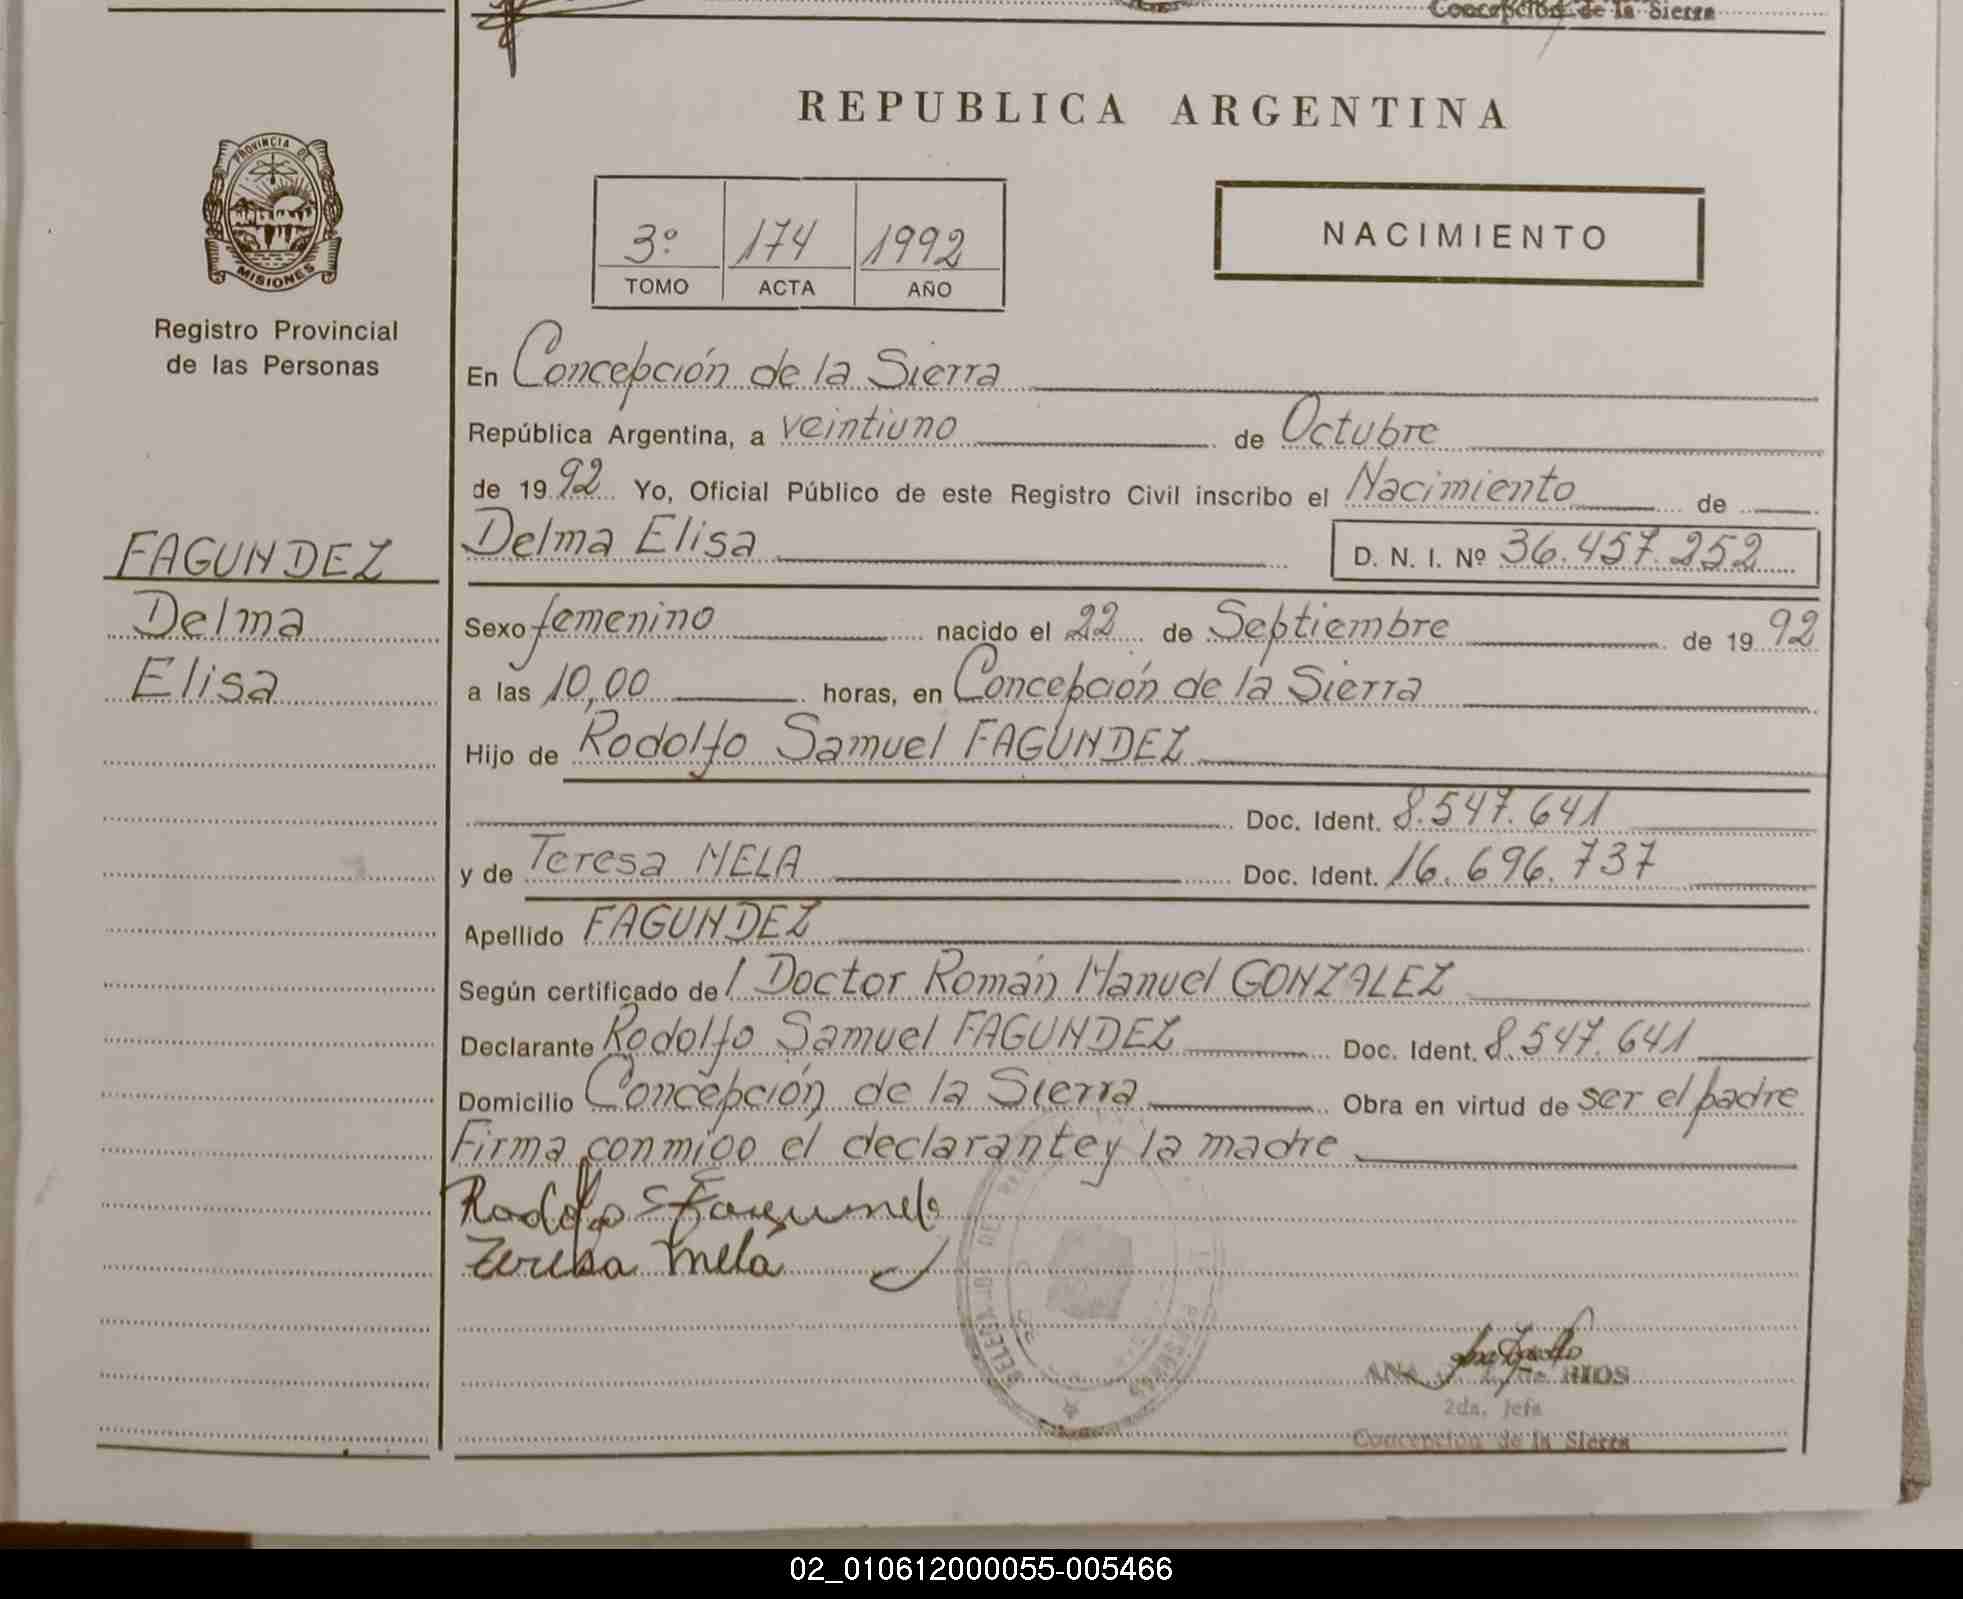 Concepción de la Sierra
REPUBLICA ARGENTINA
PROVINCIA DE
MISIONES
Registro Provincial
de las Personas
3º 174 1992
TOMO ACTA AÑO
NACIMIENTO
En Concepción de la Sierra
República Argentina, a veintiuno de Octubre
de 1992 Yo, Oficial Público de este Registro Civil inscribo el Nacimiento de
FAGUNDEZ
Delma
Elisa
Delma Elisa D. N. I. Nº 36.457.252
Sexo femenino nacido el 22 de Septiembre de 1992
a las 10,00 horas, en Concepción de la Sierra
Hijo de Rodolfo Samuel FAGUNDEZ
Doc. Ident. 8.547.641
y de Teresa MELA Doc. Ident. 16.696.737
Apellido FAGUNDEZ
Según certificado del Doctor Román Manuel GONZALEZ
Declarante Rodolfo Samuel FAGUNDEZ Doc. Ident. 8.547.641
Domicilio Concepción de la Sierra Obra en virtud de ser el padre
Firma conmigo el declarante y la madre
Rodolfo S Fagundez
Teresa Mela
ANA RIOS
2da. Jefa
Concepción de la Sierra
02_010612000055-005466